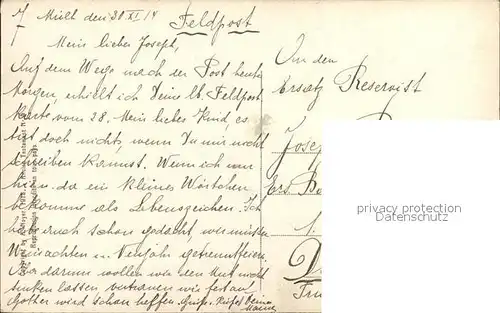 Mült den 30 XI 14
Feldpost
Mein lieber Joseph,
Auf dem Wege nach der Post heute
Morgen, erhielt ich Deine lb. Feldpost
karte vom 28. Mein liebes Kind, es
tut doch nichts, wenn Du mir nicht
schreiben kannst. Wenn ich nur
hin u. da ein kleines Wörtchen
bekomme als Lebenszeichen. Ich
habe auch schon gedacht, wir müssen
Weihnachten u. Neujahr getrennt feiern.
Aber darum wollen wir den Mut nicht
sinken lassen, vertrauen wir fest auf
Gott er wird schon helfen. Gruß u. Küsse Deine
Mama
An den
Ersatz Reservist
Jose
Ers. Ba
privacy protection
Datenschutz